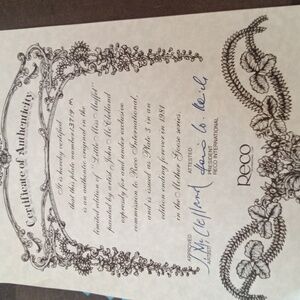 Certificate of Authenticity
It is hereby certified
that this plate number
is an authentic original in the
limited edition of "Little Miss Muffet"
painted by artist, John McClelland
expressly for and under exclusive
commission to Reco International,
and is issued as Plate 3 in an
edition ending forever in 1981
in the Mother Goose series.
APPROVED
ARTIST
ATTESTED
PRESIDENT
RECO INTERNATIONAL
RECO